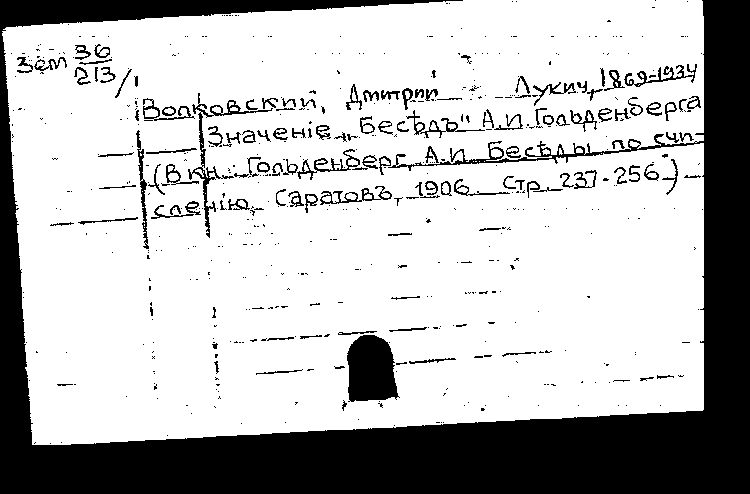 Зем 36/213
Волковский, Дмитрий Лукич, 1869-1934
Значеніе „Бесѣдъ" А.И. Гольденберга
(В кн.: Гольденберг, А.И. Бесѣды по счи-
сленію, Саратовъ, 1906. Стр. 237-256.)